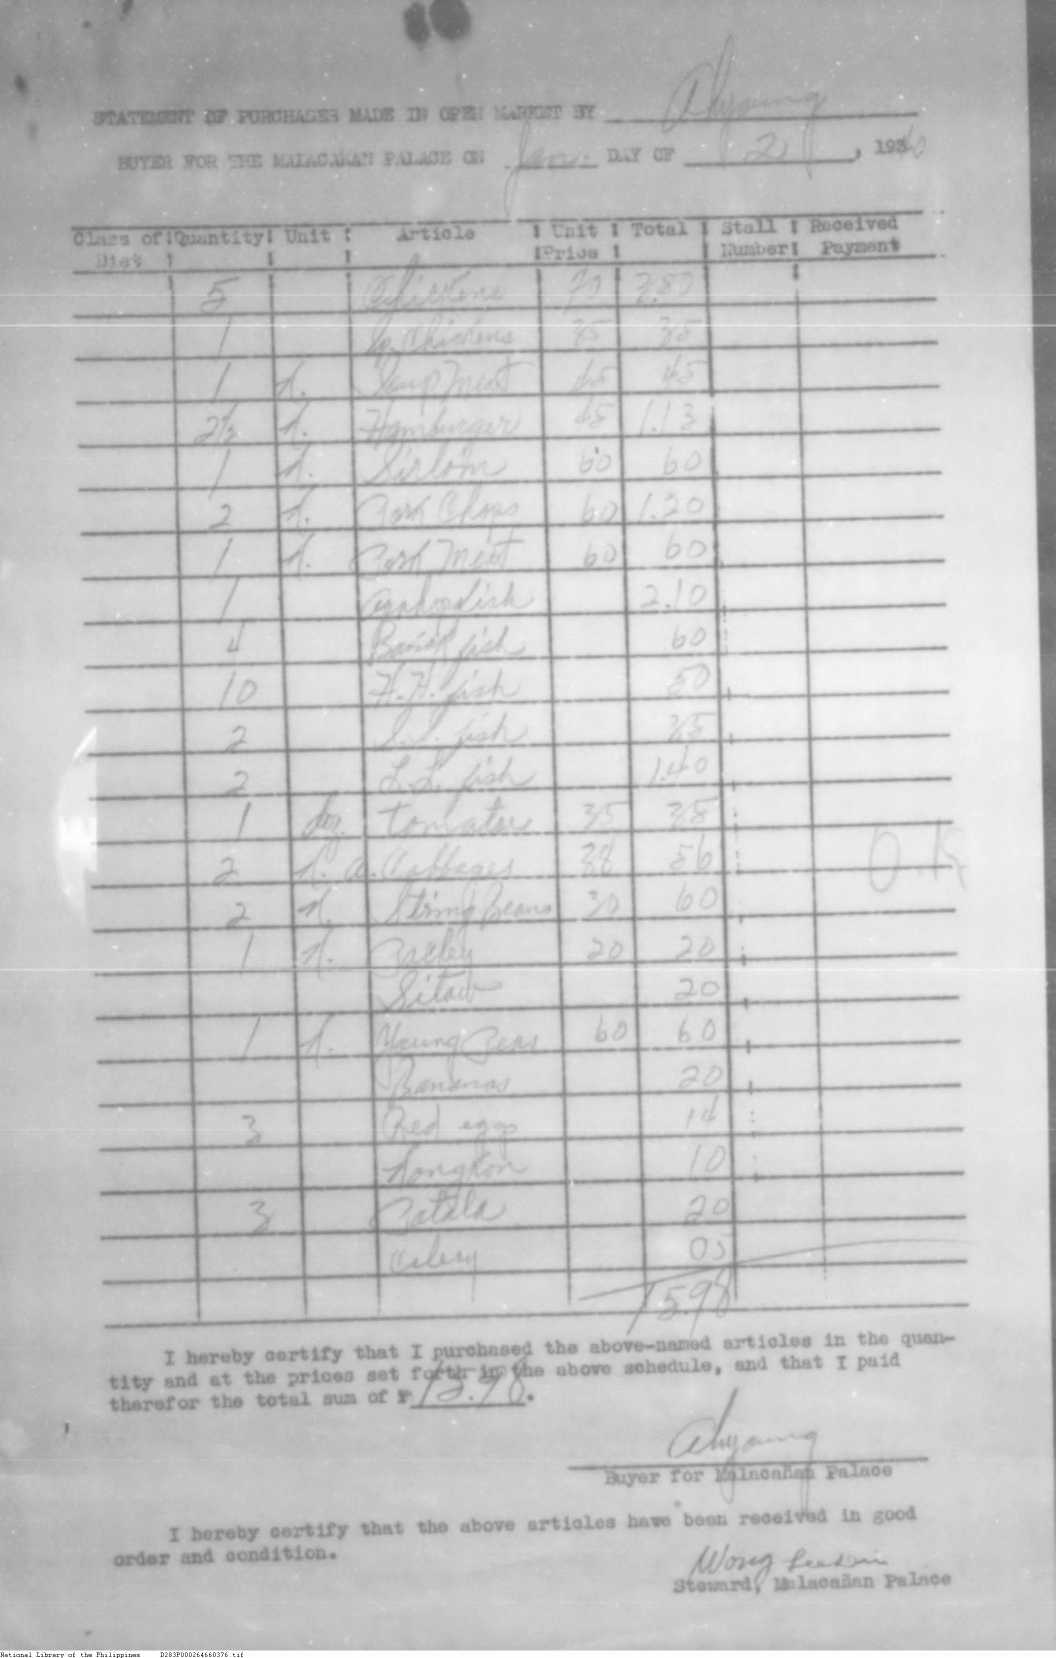 STATEMENT OF PURCHASES MADE IN OPEN MARKET BY Ahyoung
BUYER FOR THE MALACAÑAN PALACE ON Jan. DAY OF 21, 193
Class of Diet Quantity Unit Article Unit Price Total Stall Number Received Payment
5 Chickens 70
1 Chickens 35 35
1 k. Soup Meat 45 45
2½ k. Hamburger 45 1.13
1 k. Sirloin 60 60
2 k. Pork Chops 60 1.20
1 k. Pork Meat 60 60
1 2.10
4 fish 60
10 H.H. fish 50
2 fish 35
2 L.L. fish 1.40
1 kg. tomatoes 35 35
2 k. Cabbages 28 56
2 k. String Beans 30 60
1 k. 20 20
Sitaw 20
1 k. Young Peas 60 60
Bananas 20
3 Red eggs 14
Kongkon 10
3 20
Celery 05
15.98
O.K.
I hereby certify that I purchased the above-named articles in the quan-
tity and at the prices set forth in the above schedule, and that I paid
therefor the total sum of ₱ 15.98.
Ahyoung
Buyer for Malacañan Palace
I hereby certify that the above articles have been received in good
order and condition.
Wong
Steward, Malacañan Palace
National Library of the Philippines D283P000264660376.tif